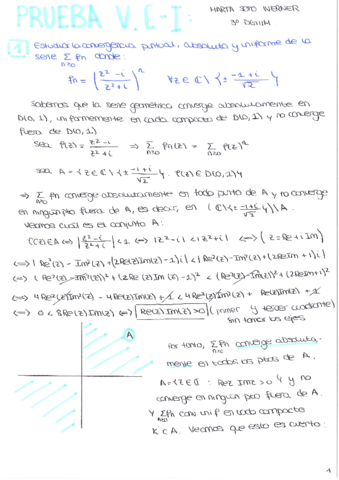 PRUEBA V.C-I:
MARTA SOTO WERNER
3º DGIIM
1 Estudiar la convergencia puntual, absoluta y uniforme de la
serie Σ fn donde:
n≥0
fn = (z²-i / z²+i)ⁿ ∀z∈ℂ\{± -1+i / √2}
Sabemos que la serie geométrica converge absolutamente en
D(0,1), uniformemente en cada compacto de D(0,1) y no converge
fuera de D(0,1)
Sea f(z) = z²-i / z²+i ⇒ Σ fn(z) = Σ f(z)ⁿ
Sea A = {z∈ℂ\{± -1+i / √2} : f(z)∈D(0,1)}
⇒ Σ fn converge absolutamente en todo punto de A y no converge
en ningún pto fuera de A, es decir, en (ℂ\{± -1+i / √2})\A.
Veamos cual es el conjunto A:
f(z)∈A ⇔ |z²-i / z²+i| < 1 ⇔ |z²-i| < |z²+i| ⇔ (z=Re+iIm)
⇔ |Re²(z)-Im²(z)+(2Re(z)Im(z)-1)i| < |Re²(z)-Im²(z)+(2RezIm+1)i|
⇔ (Re²(z)-Im²(z))²+(2Re(z)Im(z)-1)² < (Re²(z)-Im²(z))²+(2RezIm+1)²
⇔ 4Re²(z)Im²(z) - 4Re(z)Im(z)+1 < 4Re²(z)Im²(z)+ Re(z)Im(z)+1
⇔ 0 < 8Re(z)Im(z) ⇔ Re(z)Im(z)>0 (primer y tercer cuadrante)
sin tomar los ejes
A
Por tanto, Σ fn converge absoluta-
mente en todos los ptos de A,
A={z∈ℂ : Rez Imz > 0} y no
converge en ningún pto fuera de A.
Y Σ fn conv unif en todo compacto
K⊂A. Veamos que esto es cierto:
1